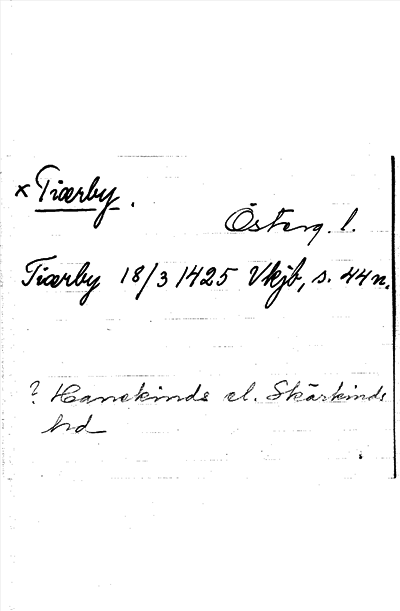 × Tiærby.
Österg. l.
Tiærby 18/3 1425 Vkjb, s. 44 n.
? Hanekinds el. Skärkinds
hd